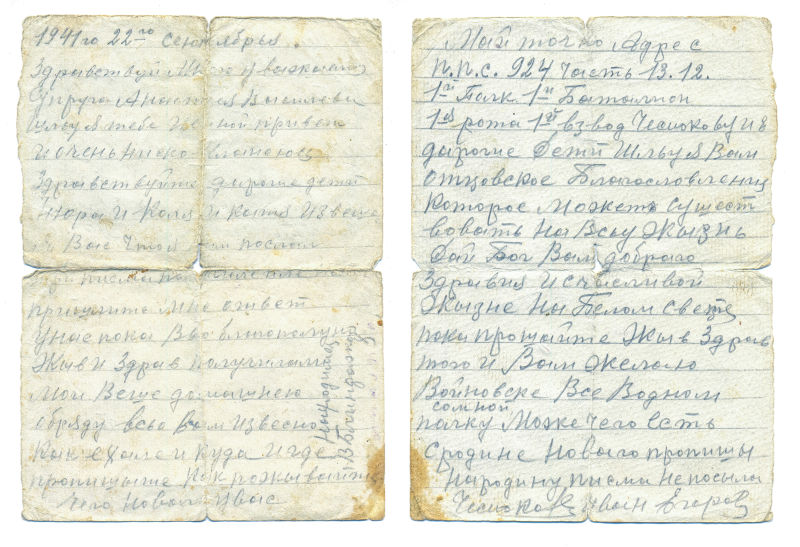 1941го 22го сентября.
Здравствуй Многоуважаемая
Супруга Анастасия Васильевна
Шлю я тебе
и очень ниско кланеюсь
Здравствуйте дарогие дети
Нюра и Коля и катя Извеща
ю Вас Что я вам послал
три писма
пришлите мне ответ
у нас пока Все благополучно
Жыв и Здрав получили ли
мои Веще домашнею
обряду всьо Вам Извесно
как ехоле и куда и где
пропишыте как рожываите
чего Новаго у Вас
Находимся
в Блиндажах
Мой точно Адрес
П.П.С. 924 Часть 13.12.
1й Палк 1й Баталион
1я рота 1й взвод Чеснокову И Е
дарогие дети Шлю я Вам
отцовское Благословление
которое Можеть сущест
вовать На Всю Жызнь
дай Бог Вам доброго
Здравия и счесливой
Жызне На Белом свете
пока прощайте Жыв Здрав
того и Вам Желаю
Войновске Все Водном
сомной
палку Може Чего Есть
Сродине Новаго пропишы
На родину писма Не посыла
Чесноков Иван Егоров